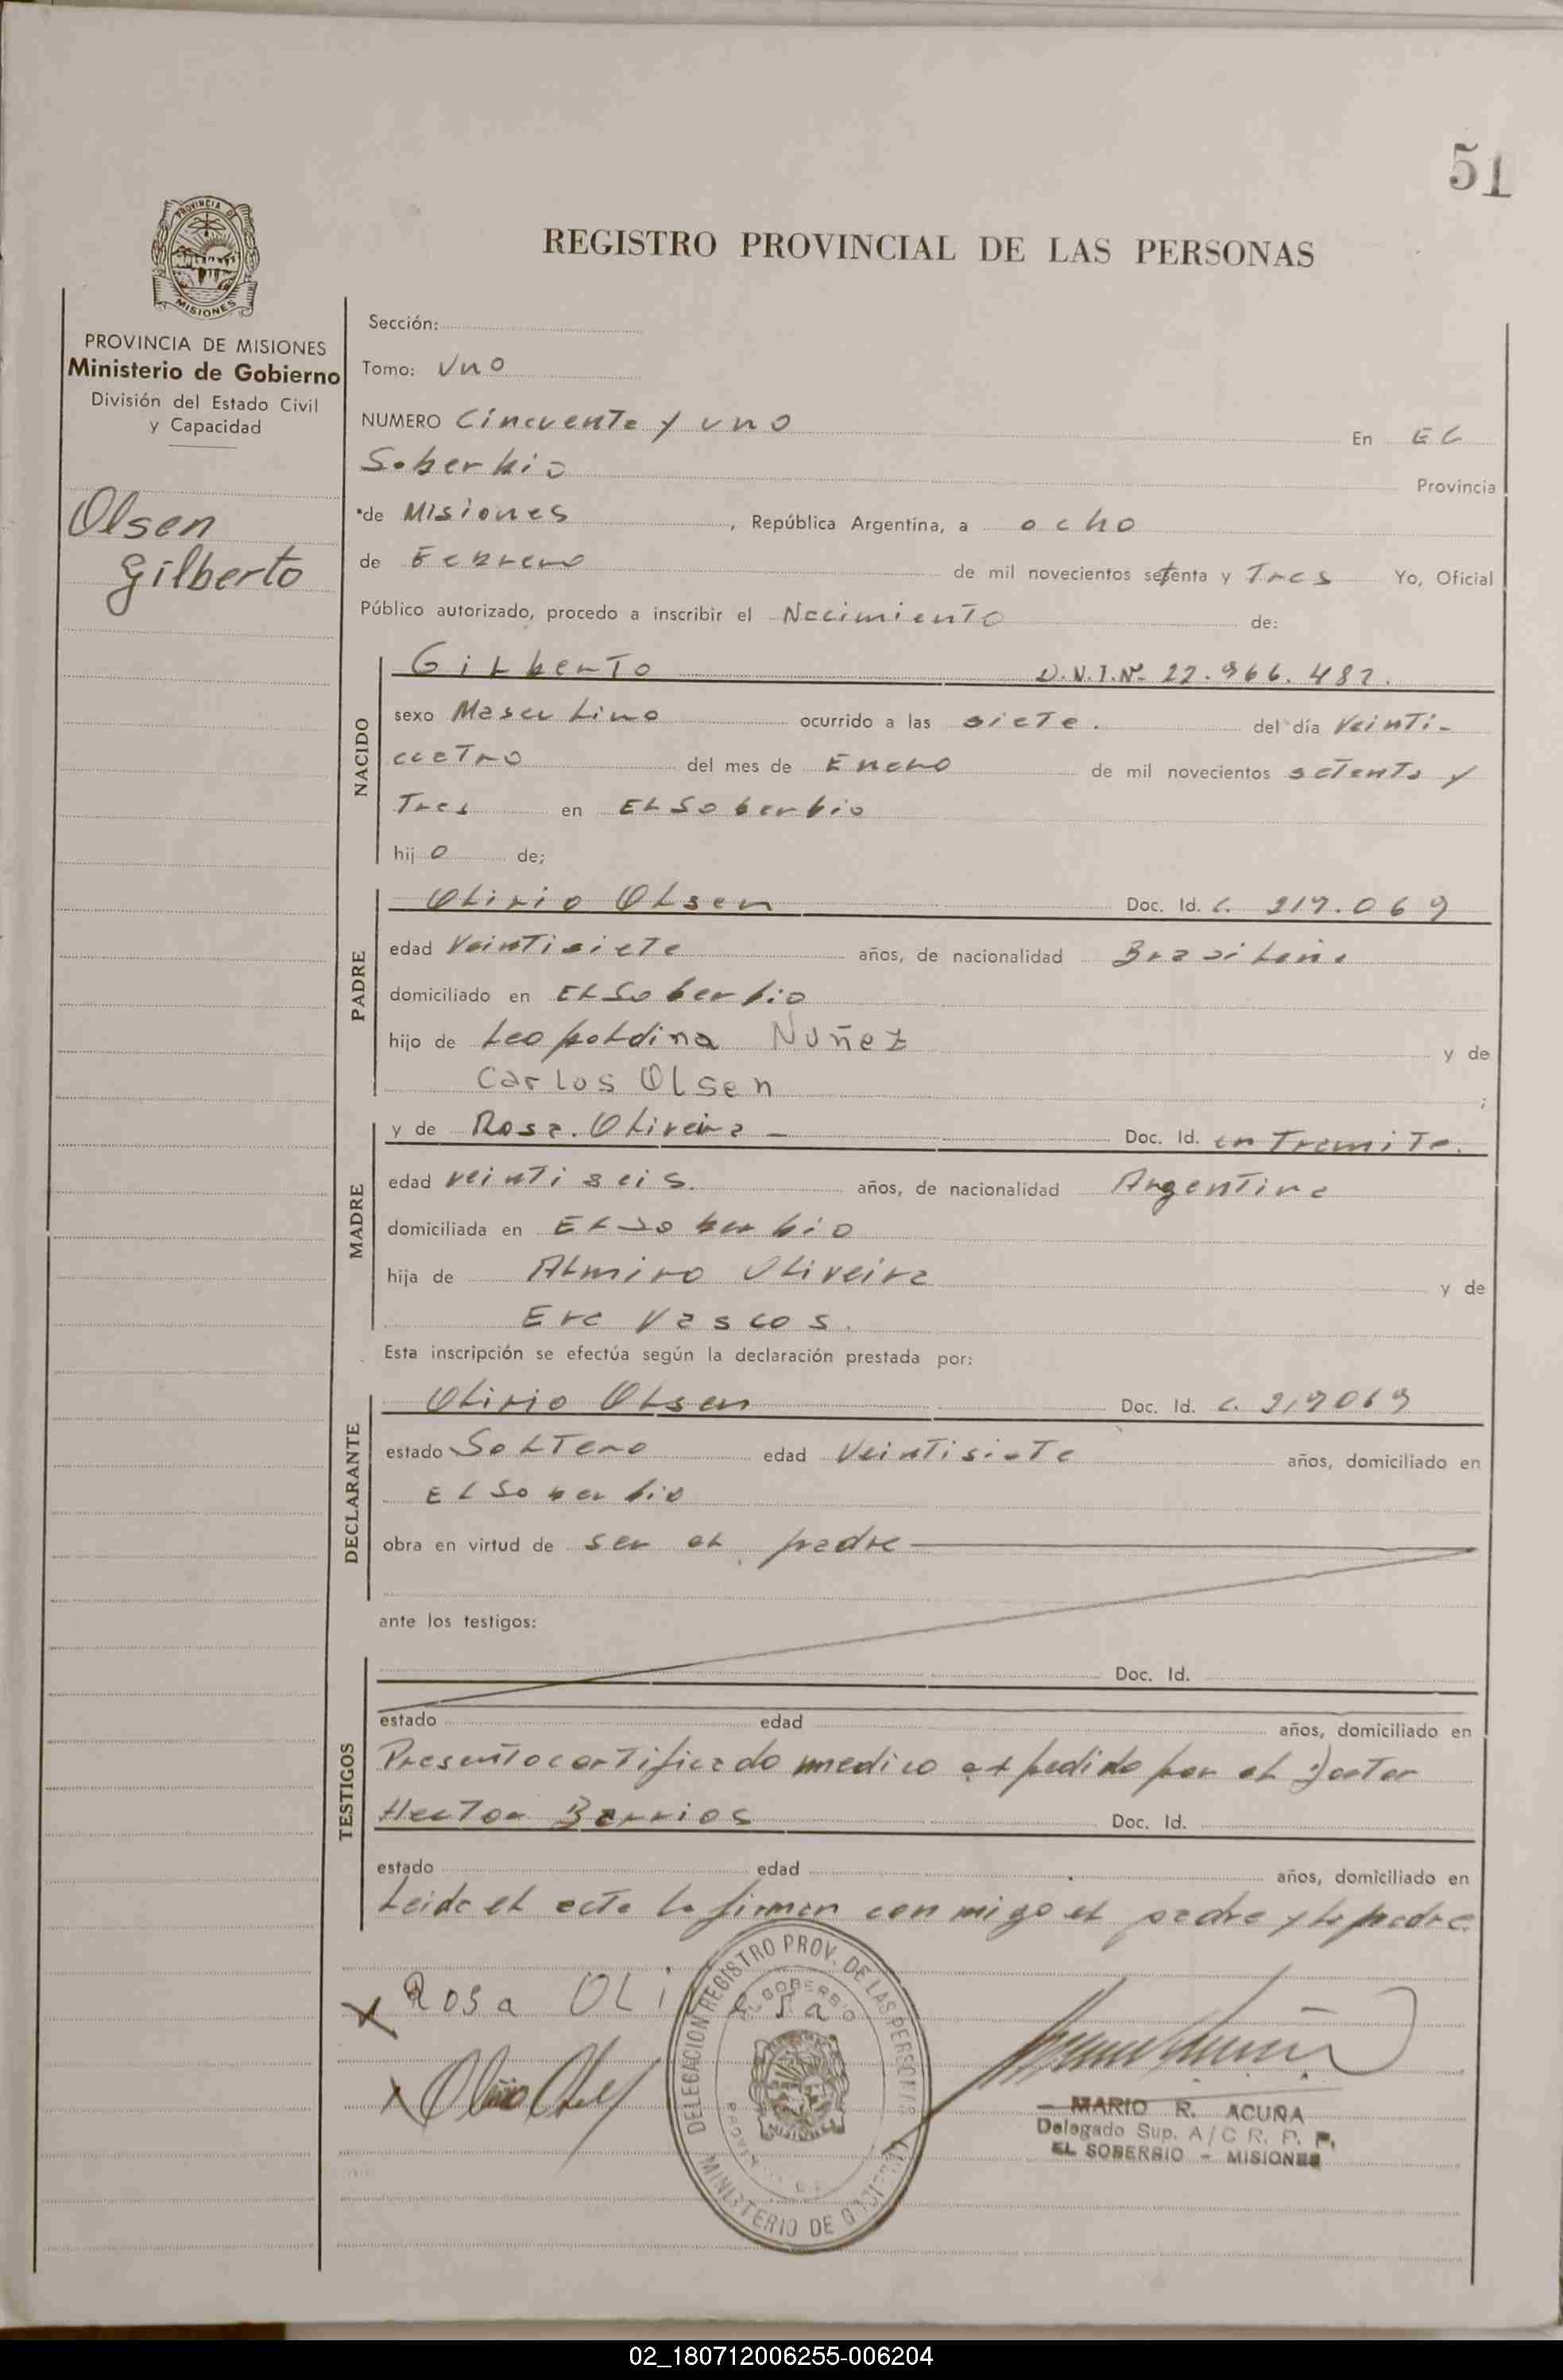 51
PROVINCIA DE MISIONES
REGISTRO PROVINCIAL DE LAS PERSONAS
PROVINCIA DE MISIONES
Ministerio de Gobierno
División del Estado Civil
y Capacidad
Olsen
Gilberto
Sección:
Tomo: Uno
NUMERO Cincuenta y uno En El
Soberbio Provincia
de Misiones, República Argentina, a ocho
de Febrero de mil novecientos setenta y Tres Yo, Oficial
Público autorizado, procedo a inscribir el Nacimiento de:
NACIDO
Gilberto D.N.I.Nº 22.966.482.
sexo Masculino ocurrido a las siete. del día Veinti-
cuatro del mes de Enero de mil novecientos setenta y
Tres en El Soberbio
hijo de;
PADRE
Olirio Olsen Doc. Id. C. 219.069
edad Veintisiete años, de nacionalidad Brasileña
domiciliado en El Soberbio
hijo de Leopoldina Nuñez y de
Carlos Olsen ;
MADRE
y de Rosa. Oliveira - Doc. Id. en Tramite.
edad veintiseis. años, de nacionalidad Argentina
domiciliada en El Soberbio
hija de Almiro Oliveira y de
Eva Vascos.
Esta inscripción se efectúa según la declaración prestada por:
DECLARANTE
Olirio Olsen Doc. Id. C. 219069
estado Soltero edad Veintisiete años, domiciliado en
El Soberbio
obra en virtud de ser el padre
ante los testigos:
TESTIGOS
Doc. Id.
estado edad años, domiciliado en
Presento certificado medico expedido por el Doctor
Hector Barrios Doc. Id.
estado edad años, domiciliado en
Leida el acta la firman con migo el padre y la madre
x Rosa OLi
DELEGACION REGISTRO PROV. DE LAS PERSONAS
EL SOBERBIO
MISIONES
MINISTERIO DE GOBIERNO
MARIO R. ACUÑA
Delegado Sup. A/C R. P. P.
EL SOBERBIO - MISIONES
02_180712006255-006204